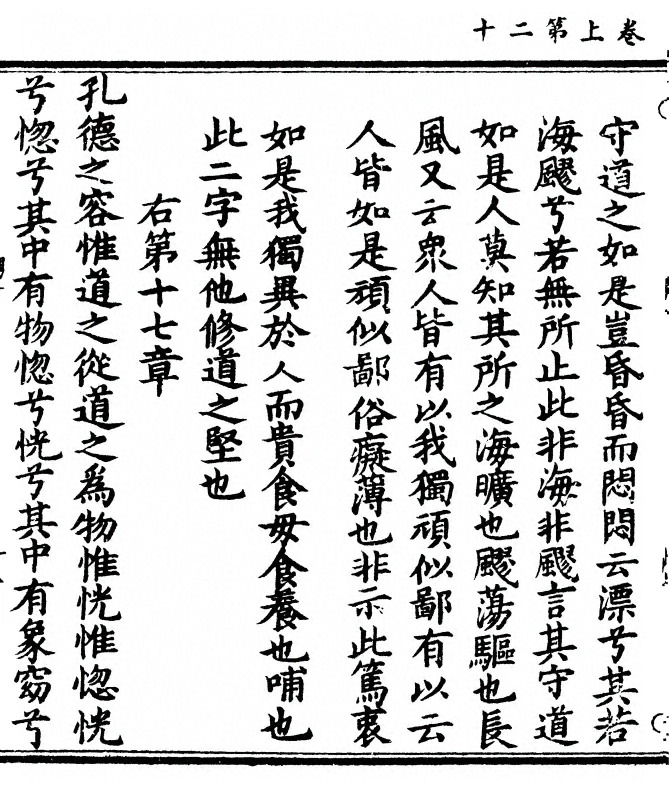 卷上第二十
守道之如是豈昏昏而悶悶云漂兮其若
海飂兮若無所止此非海非飂言其守道
如是人莫知其所之海曠也飂蕩驅也長
風又云衆人皆有以我獨頑似鄙有以云
人皆如是頑似鄙俗癡薄也非示此篤衷
如是我獨異於人而貴食母食養也哺也
此二字無他修道之堅也
右第十七章
孔德之容惟道之從道之為物惟恍惟惚恍
兮惚兮其中有物惚兮恍兮其中有象窈兮